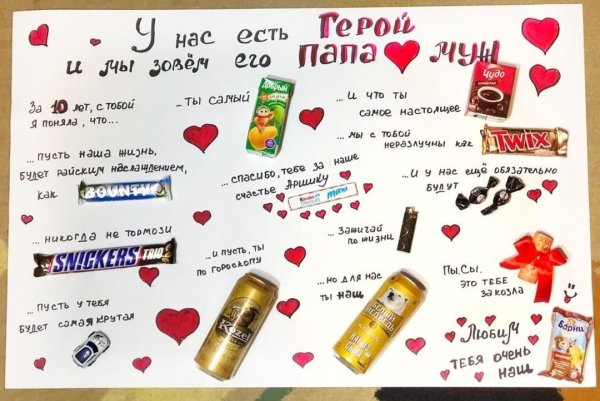 У нас есть Герой
и мы зовём его папа муж
За 10 лет, с тобой
я поняла, что...
- ты самый
Добрый
... и что ты
самое настоящее
Чудо
...пусть наша жизнь,
будет райским наслаждением,
как
BOUNTY
...спасибо, тебе за наше
счастье Аришку
Kinder
maxi
... мы с тобой
неразлучны как
Twix
...и у нас ещё обязательно
будут
... никогда не тормози
SNICKERS TRIO
...и пусть, ты
по гороскопу
Kozel
... Зажигай
по жизни
...но для нас
ты наш
БЕЛЫЙ
МЕДВЕДЬ
Пы.Сы.
это тебе
за козла
...пусть у тебя
будет самая крутая
Любим
тебя очень
наш
Барни